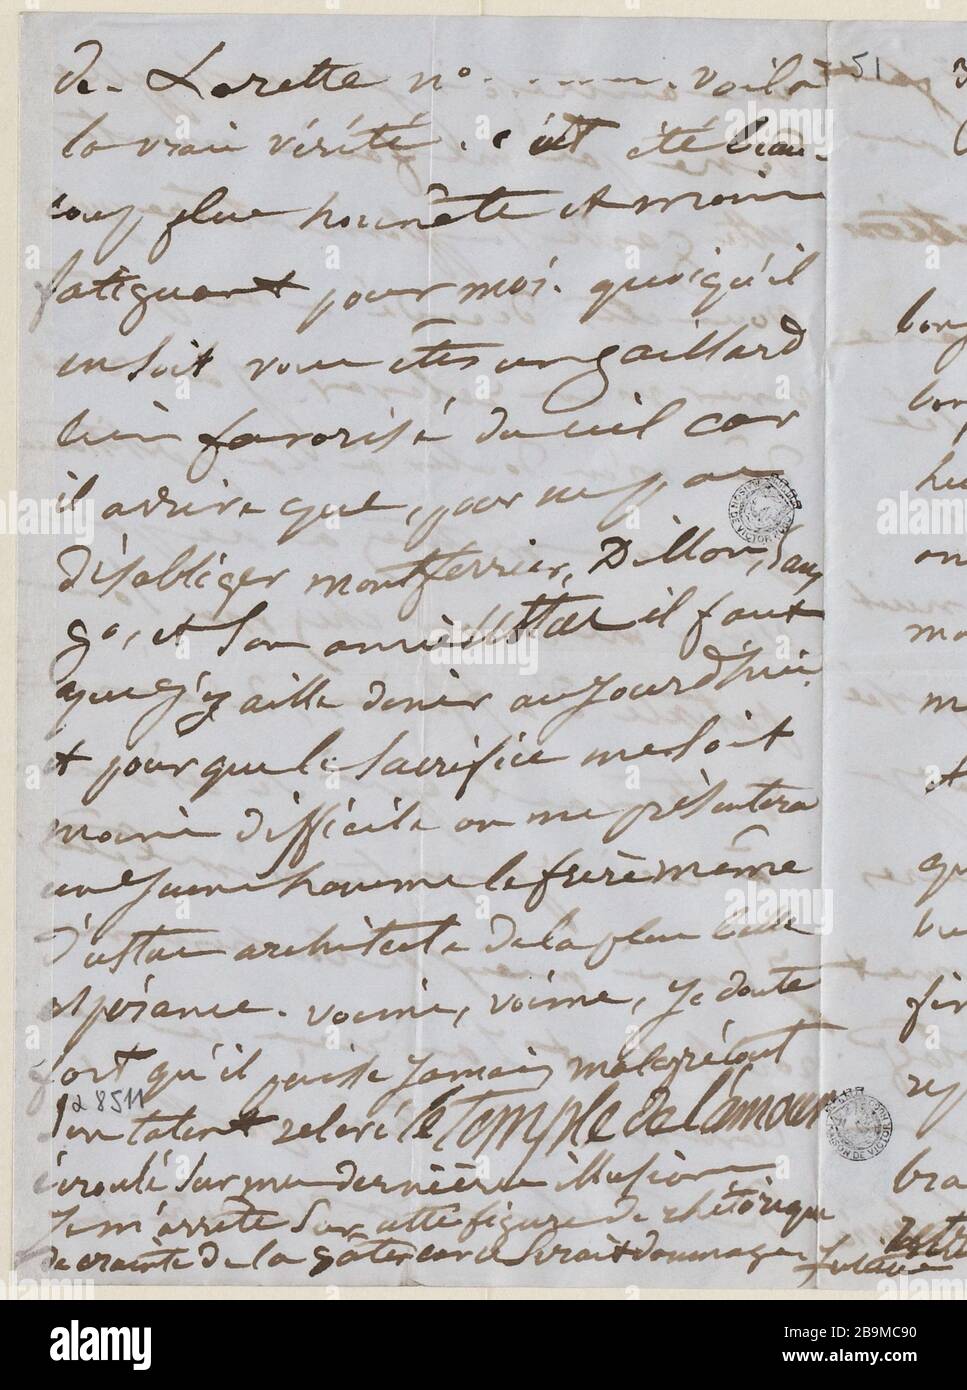 51
de Lorette n° . . . . . . . voilà
la vraie vérité. c'eût été beau-
coup plus honnête et moins
fatiguant pour moi. quoiqu'il
en soit vous êtes un gaillard
bien favorisé du ciel car
il arrive que, pour ne pas
désobliger montferrier, Dillon,
et son ami il faut
que j'y aille dîner aujourd'hui
et pour que le sacrifice me soit
moins difficile on me présentera
un jeune homme le frère même
d'astar architecte de la plus belle
espérance. voime, voime, je doute
fort qu'il puisse jamais malgré tout
son talent relever le temple de l'amour
écroulé sur ma dernière illusion
Je m'arrête sur cette figure de rhétorique
de crainte de la gâter car ce serait dommage
Juliette
α 8511
MAISON DE VICTOR HUGO
MAISON DE VICTOR HUGO
alamy
alamy
Image ID: 2B9MC90
www.alamy.com